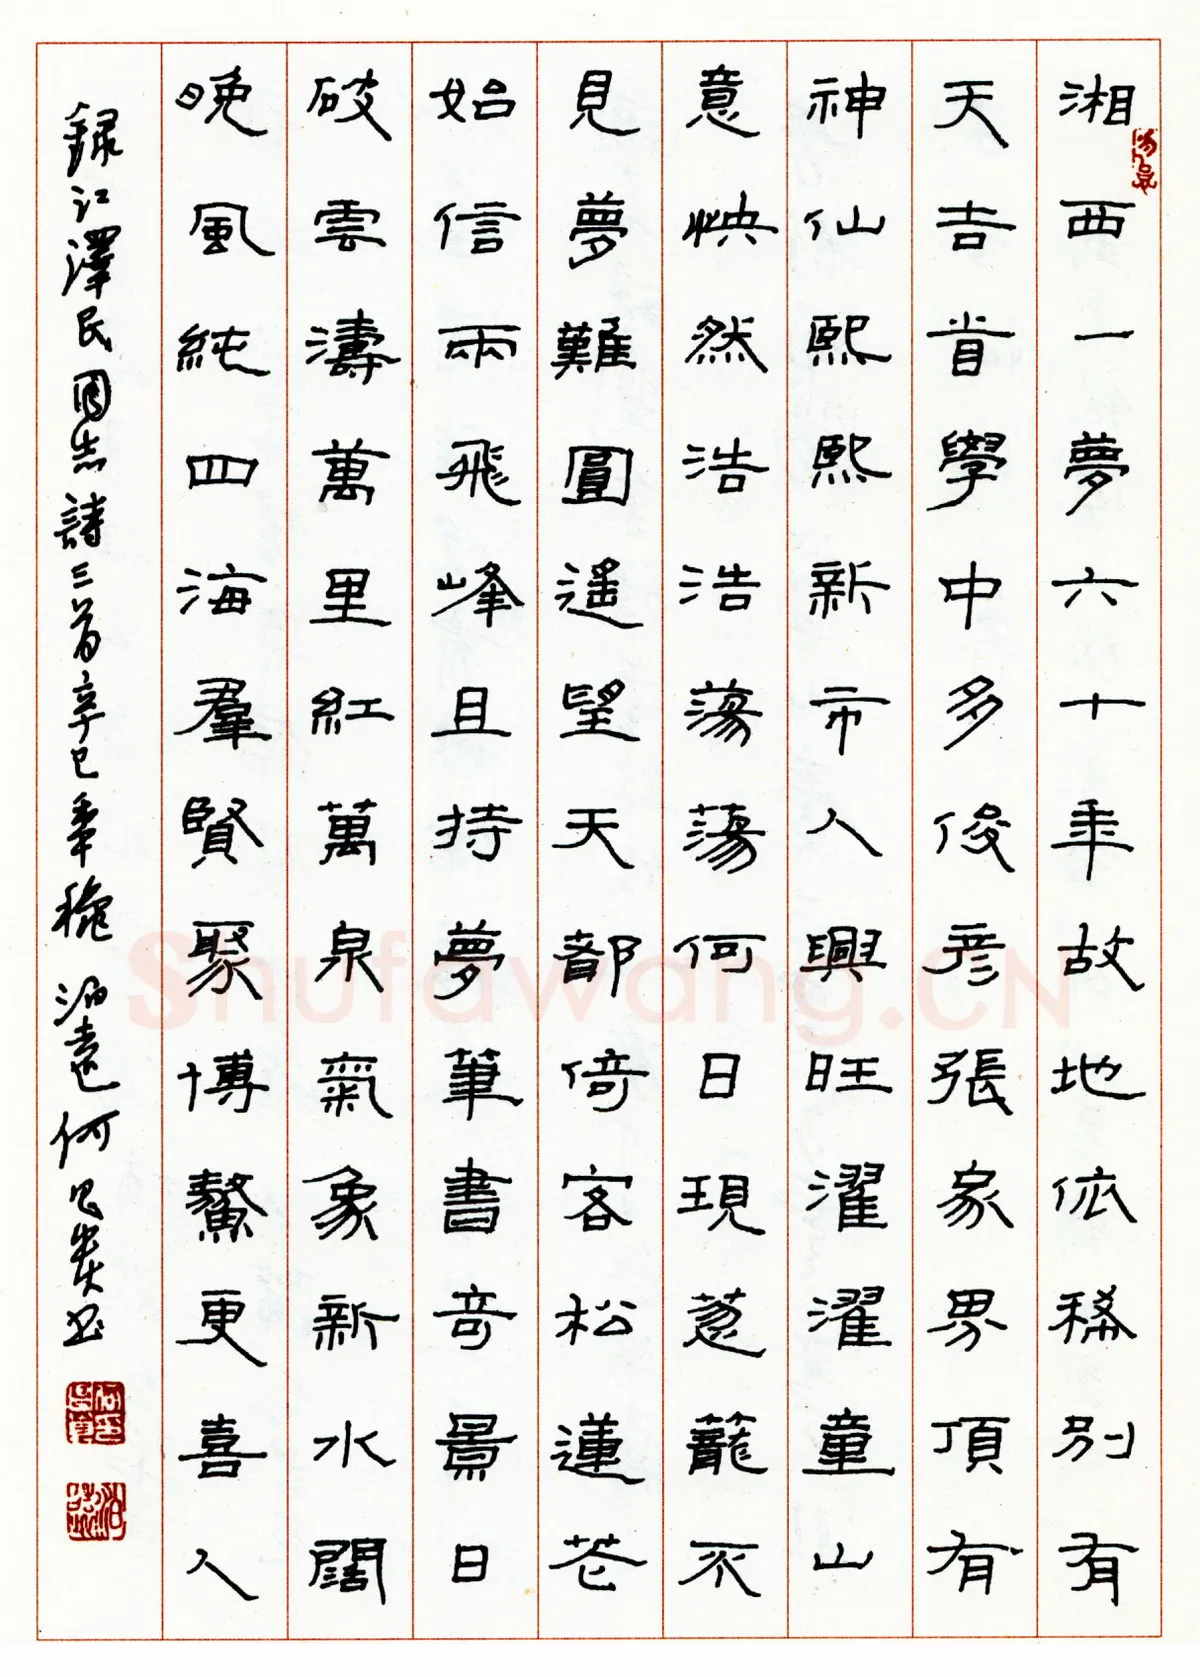 湘西一夢六十年故地依稀別有
天吉首學中多俊彥張家界頂有
神仙熙熙新市人興旺濯濯童山
意怏然浩浩蕩蕩何日現蔥蘢不
見夢難圓遙望天都倚客松蓮花
始信兩飛峰且持夢筆書奇景日
破雲濤萬里紅萬泉氣象新水闊
晚風純四海羣賢聚博鰲更喜人
録江澤民同志詩三首辛巳年穐 遠何書
Shufawang.CN